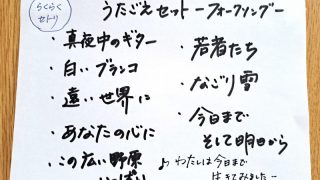 らくらく
セトリ
うたごえセットーフォークソングー
・真夜中のギター
・白いブランコ
・遠い世界に
・あなたの心に
・この広い野原
いっぱい
・若者たち
・なごり雪
・今日まで
そして明日から
♪わたしは今日まで
生きてみました－